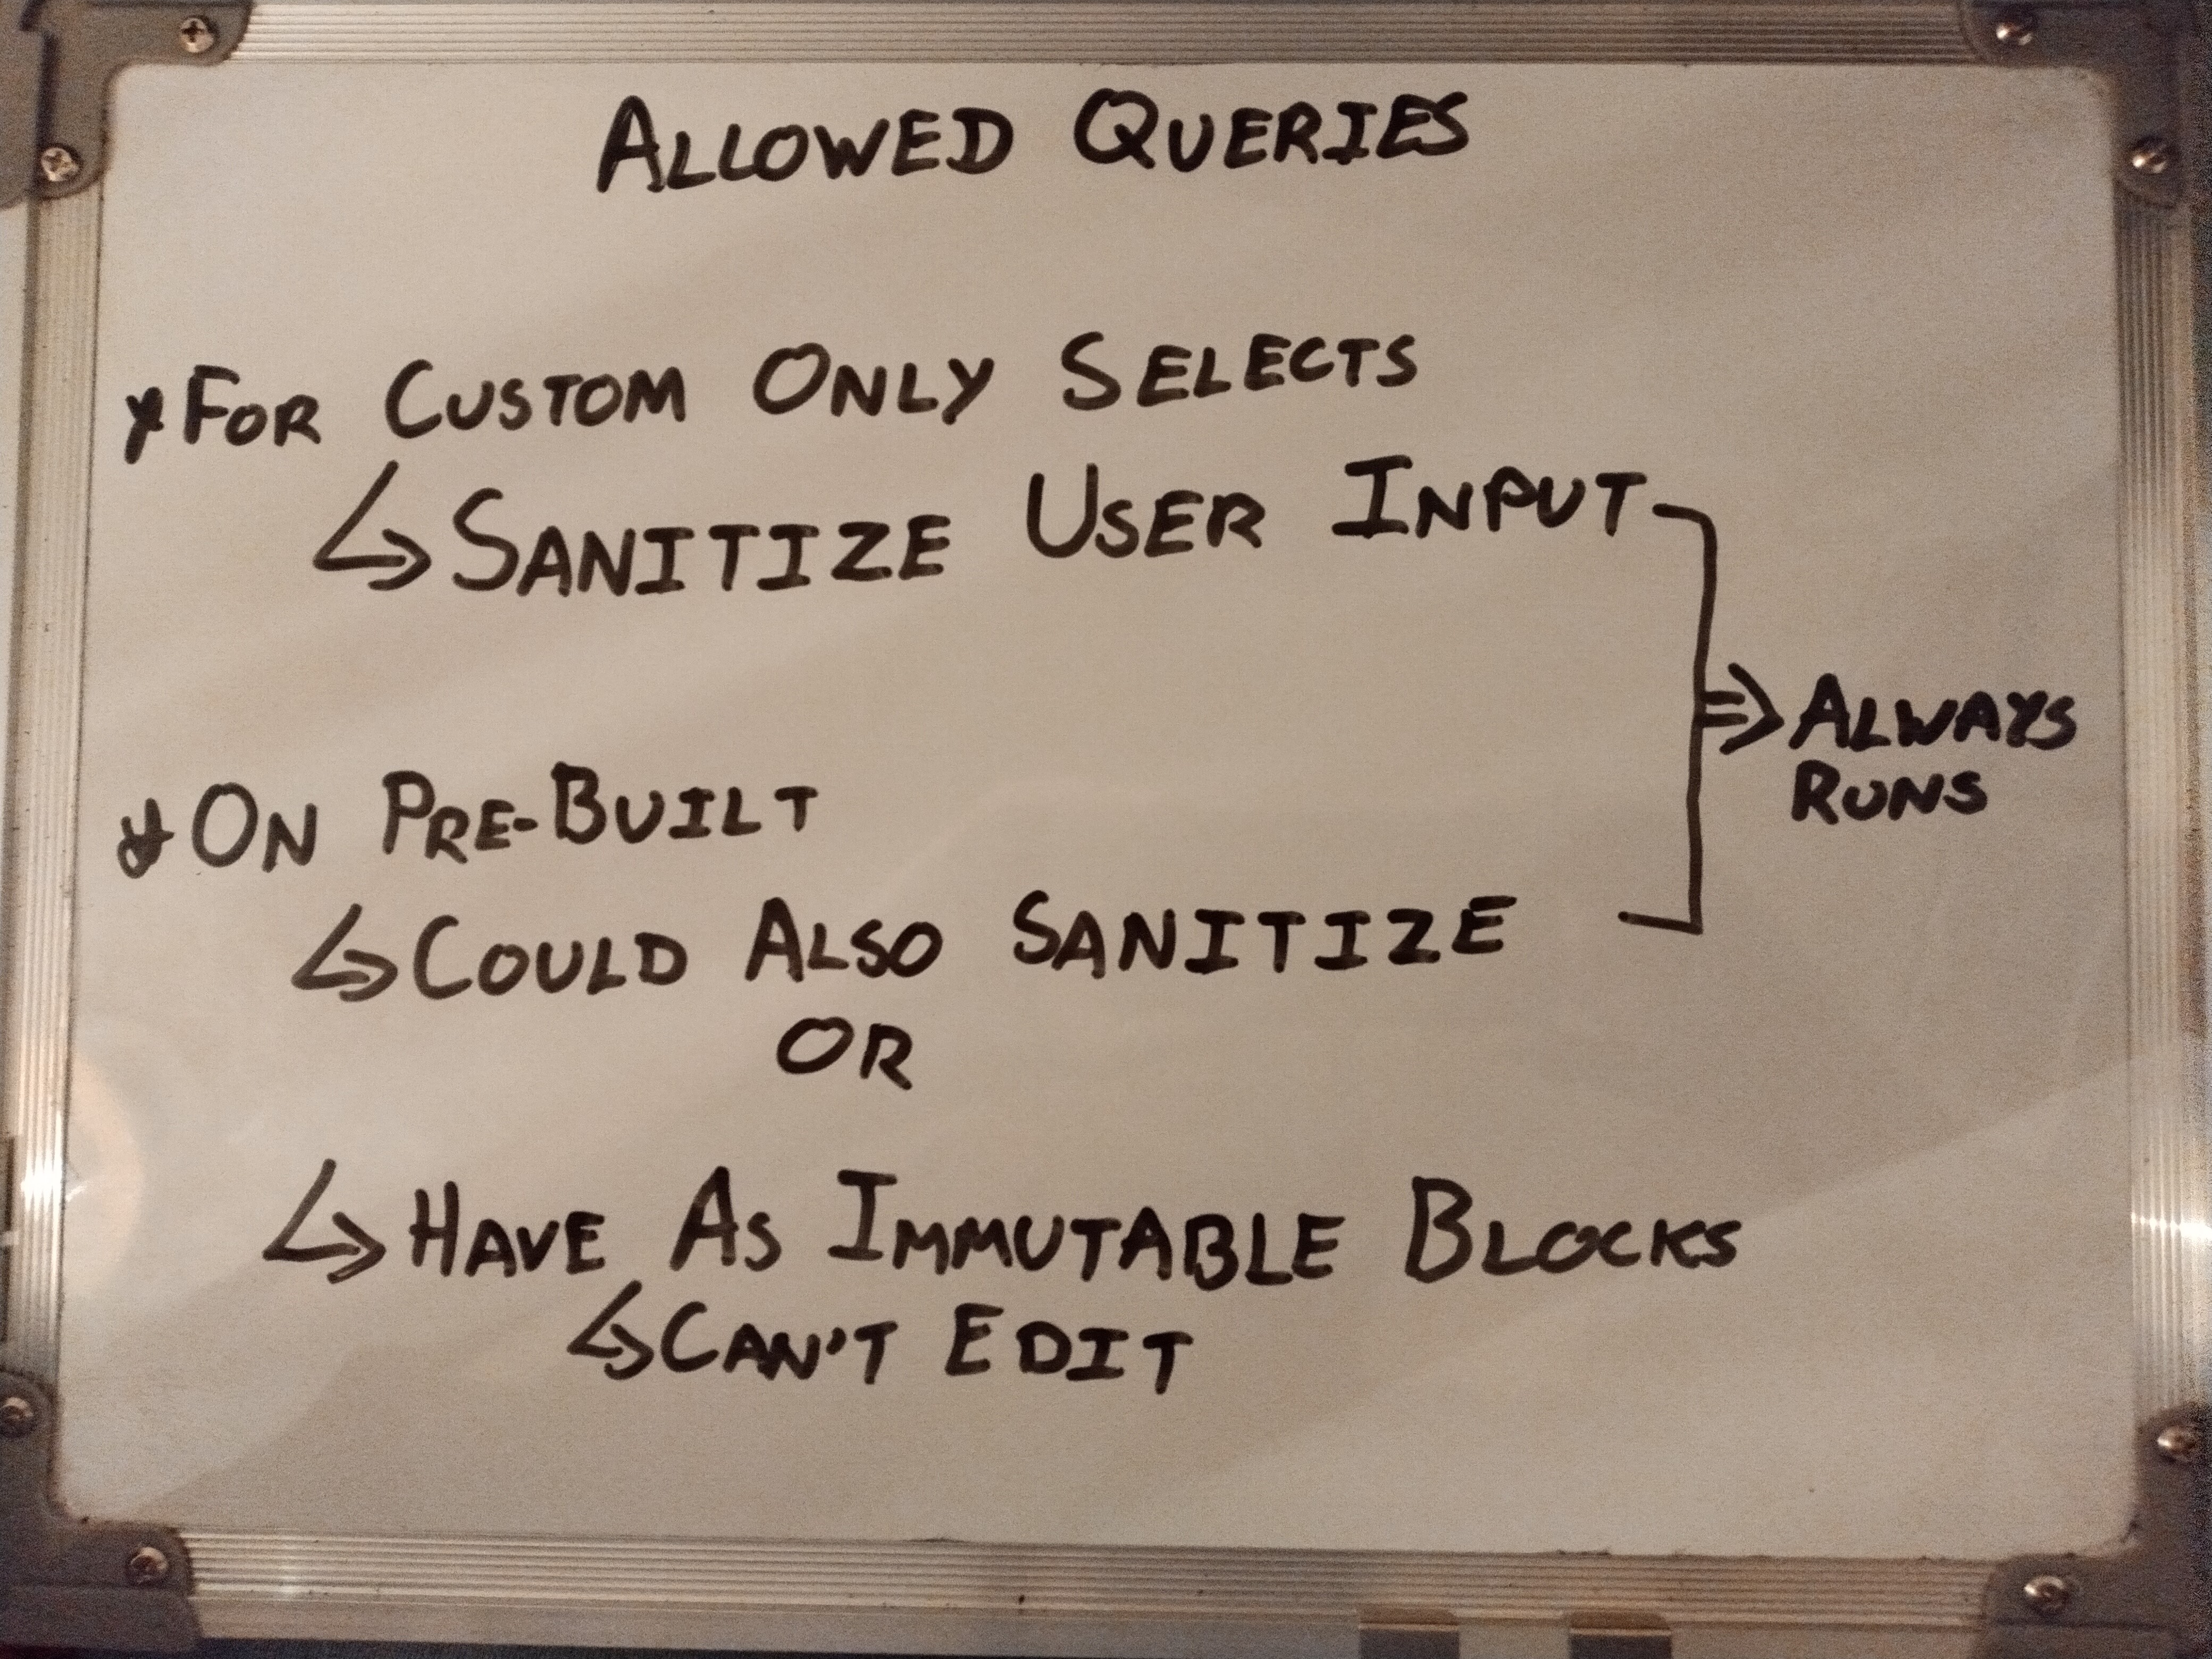 ALLOWED QUERIES
* FOR CUSTOM ONLY SELECTS
↳ SANITIZE USER INPUT
⇒ ALWAYS
RUNS
* ON PRE-BUILT
↳ COULD ALSO SANITIZE
OR
↳ HAVE AS IMMUTABLE BLOCKS
↳ CAN'T EDIT